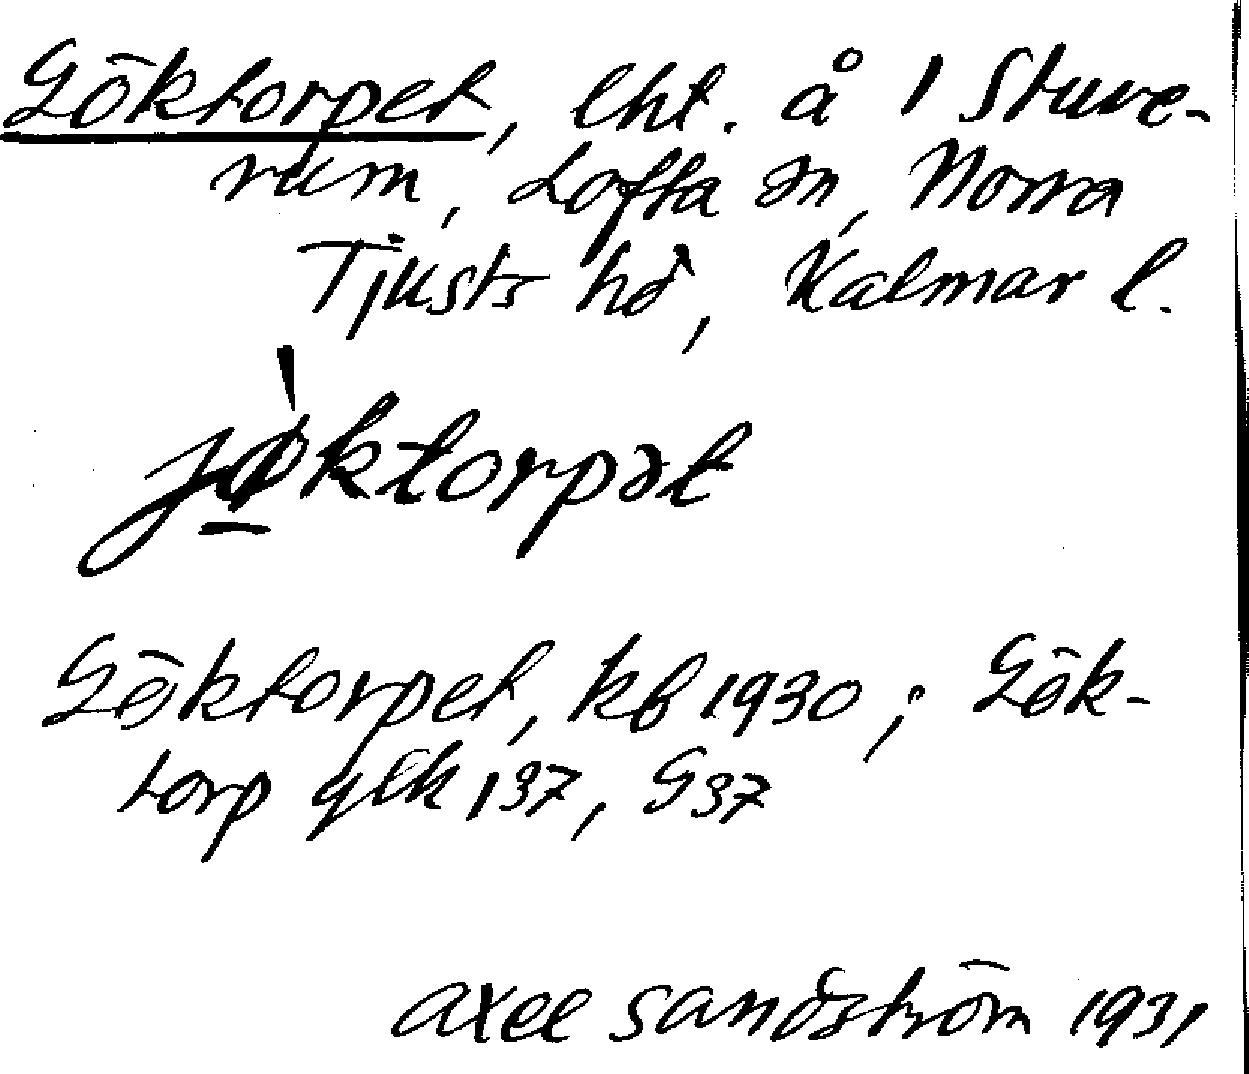 Göktorpet, lht. å 1 Stuve-
rum, Lofta sn, Norra
Tjusts hd, Kalmar l.
jø̀ktorpət
Göktorpet, kb 1930; Gök-
torp gek 137, G37
Axel Sandström 1931